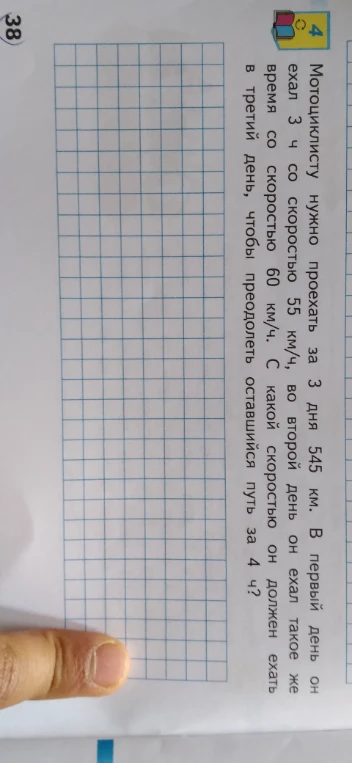 4
Мотоциклисту нужно проехать за 3 дня 545 км. В первый день он
ехал 3 ч со скоростью 55 км/ч, во второй день он ехал такое же
время со скоростью 60 км/ч. С какой скоростью он должен ехать
в третий день, чтобы преодолеть оставшийся путь за 4 ч?
38